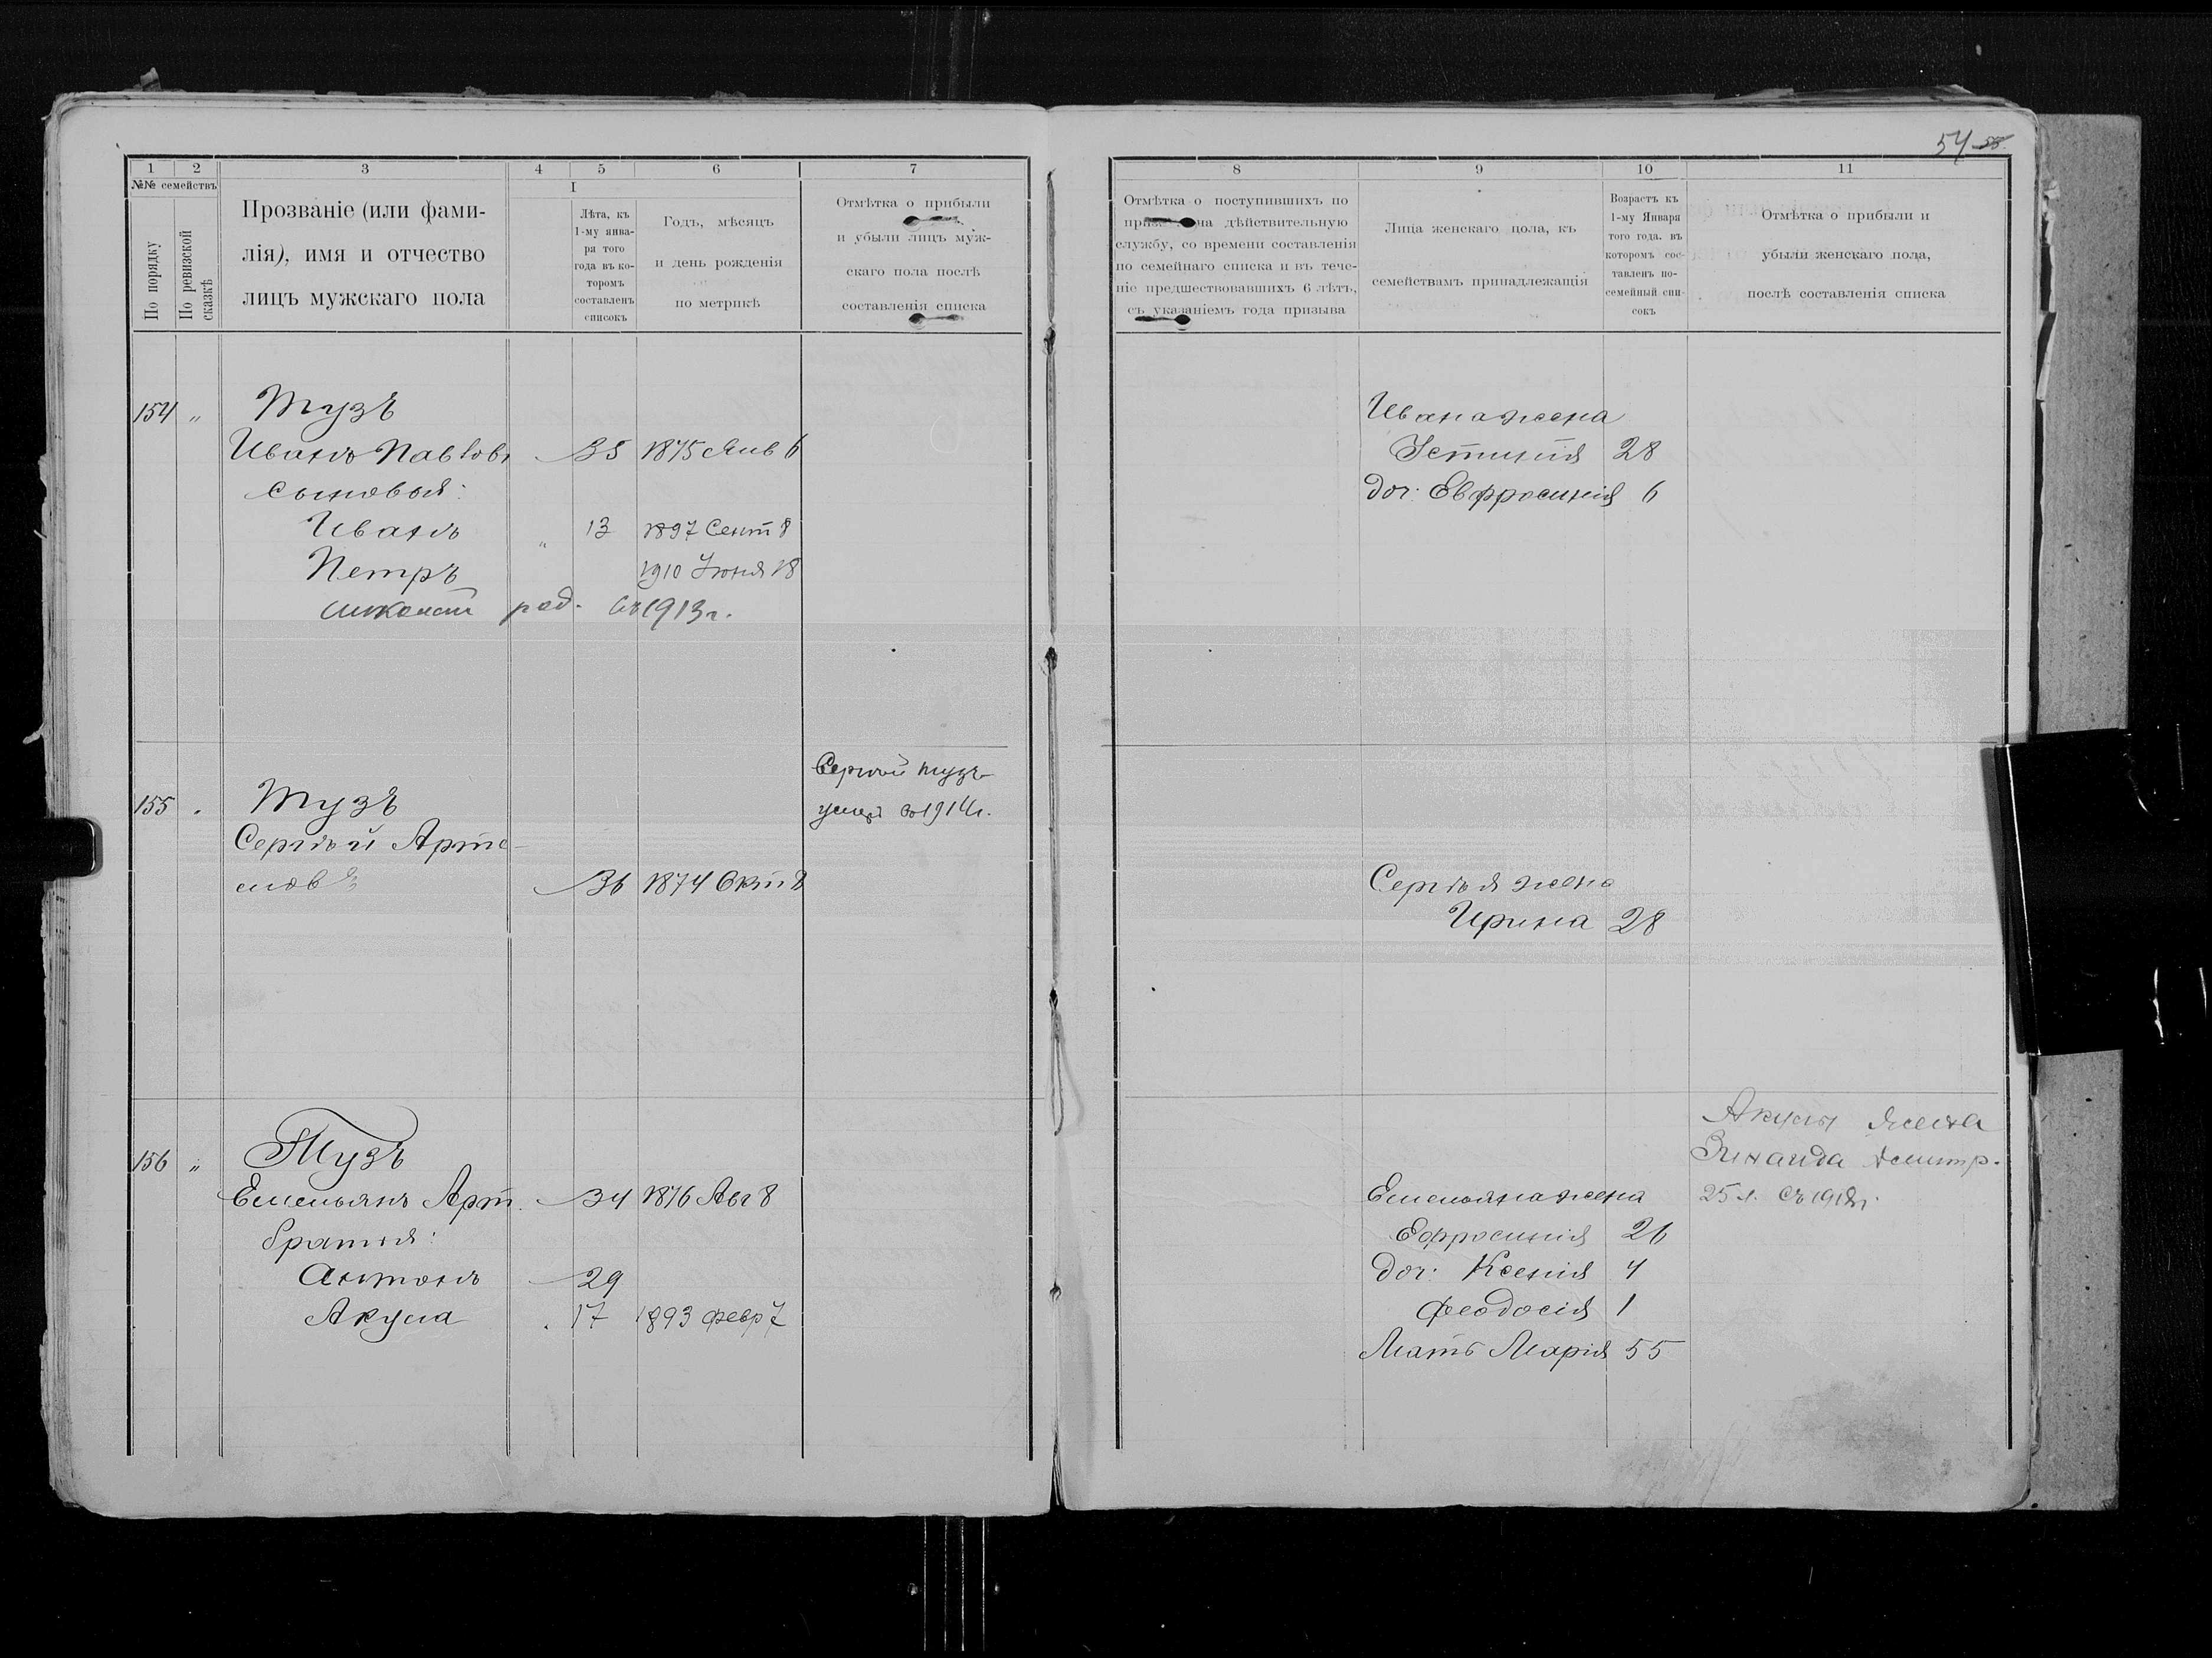 54 55.
1 2 3 4 5 6 7
№№ семействъ
По порядку
По ревизской сказкѣ
Прозваніе (или фами-
лія), имя и отчество
лицъ мужскаго пола
I
Лѣта, къ
1-му янва-
ря того
года въ ко-
торомъ
составленъ
списокъ
Годъ, мѣсяцъ
и день рожденія
по метрикѣ
Отмѣтка о прибыли
и убыли лицъ муж-
скаго пола послѣ
составленія списка
154 „ Тузъ
Иванъ Павлов. 35 1875 Янв 6
сыновья:
Иванъ „ 13 1897 Сент 8
Петръ 1910 Іюня 18
Николай род. въ 1913 г.
Сергѣй Тузъ
умер въ 1914 г.
155 „ Тузъ
Сергѣй Арте-
мовъ 36 1874 Окт 8
156 „ Тузъ
Емельянъ Арт. 34 1876 Авг 8
братья:
Антонъ 29
Акула 17 1893 февр 7
8 9 10 11
Отмѣтка о поступившихъ по
на дѣйствительную
службу, со времени составленія
по семейнаго списка и въ тече-
ніе предшествовавшихъ 6 лѣтъ,
съ указаніемъ года призыва
Лица женскаго пола, къ
семействамъ принадлежащія
Возрастъ къ
1-му Января
того года. въ
которомъ сос-
тавленъ по-
семейный спи-
сокъ
Отмѣтка о прибыли и
убыли женскаго пола,
послѣ составленія списка
Ивана жена
Устинія 28
доч: Евфросинія 6
Сергѣя жена
Ирина 28
Акулы жена
Зинаида Дмитр.
25 л. съ
Емельяна жена
Ефросинія 26
доч: Ксенія 4
Феодосія 1
Мать Марія 55